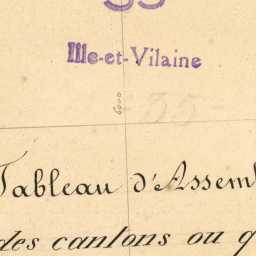 35
Ille-et-Vilaine
35
Tableau d'Assem
des cantons ou q